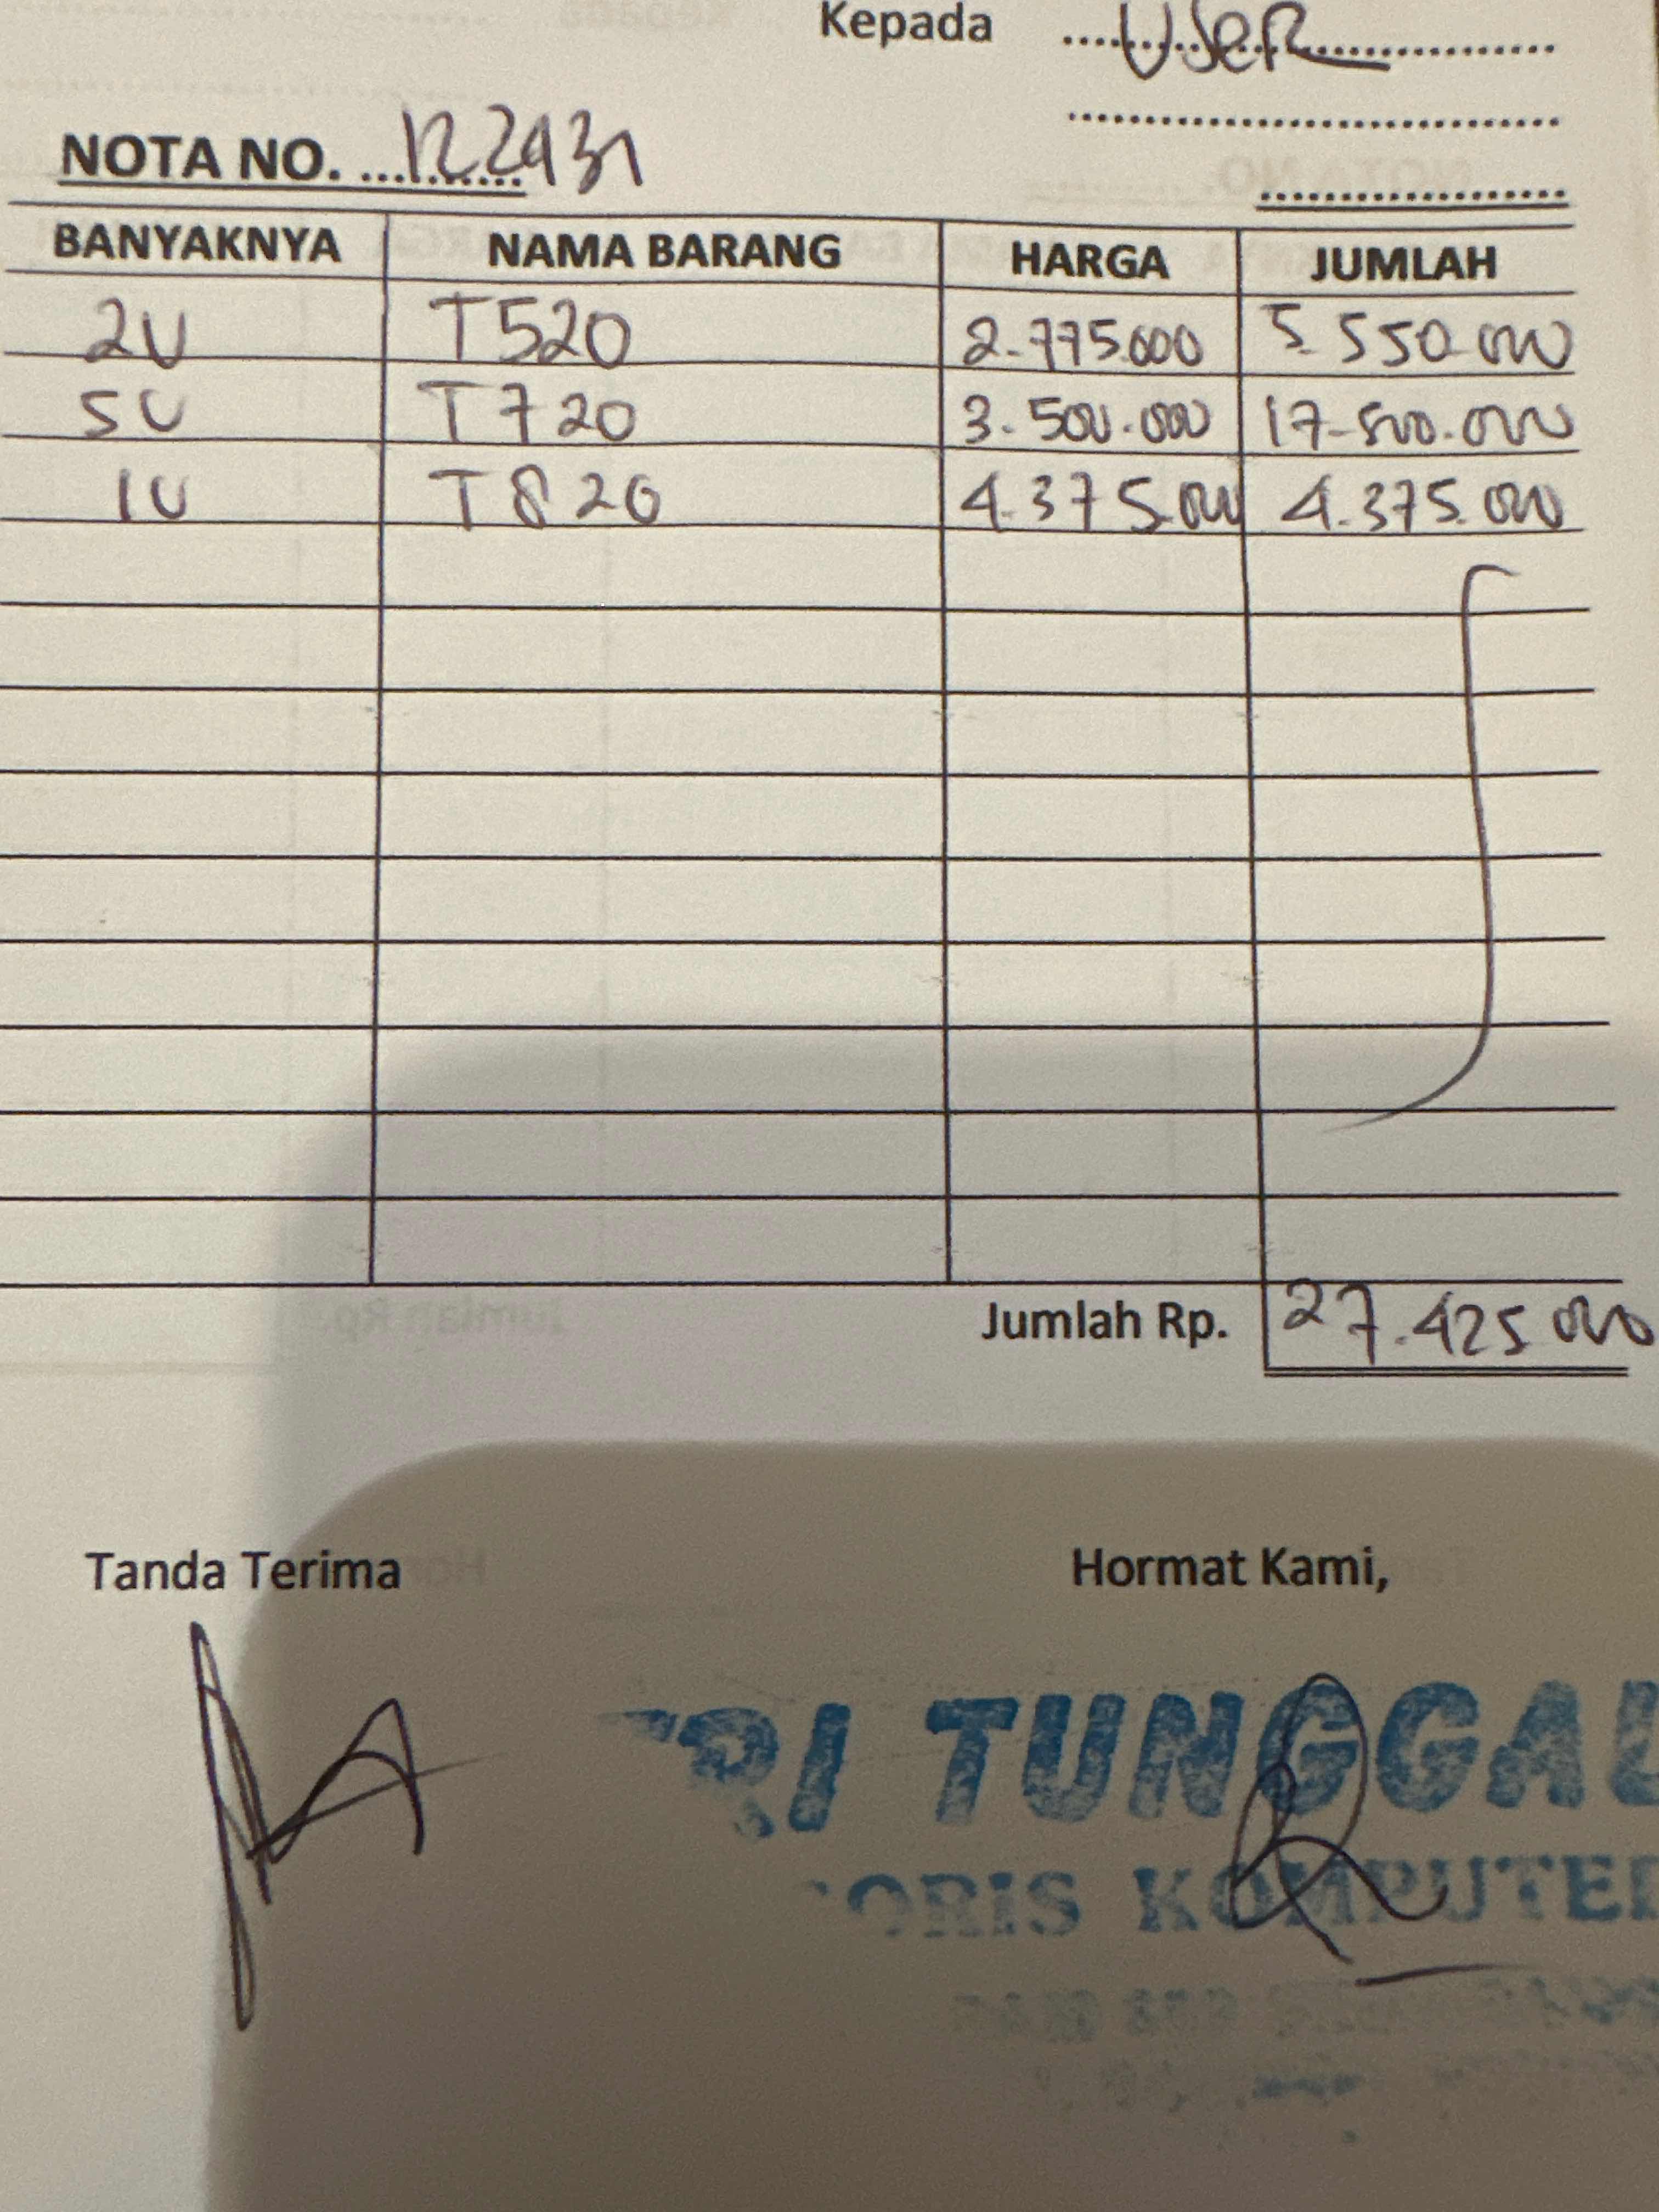 Kepada USER
NOTA NO. 122431
BANYAKNYA NAMA BARANG HARGA JUMLAH
2U T520 2.775.000 5.550.000
5U T720 3.500.000 17.500.000
1U T820 4.375.000 4.375.000
Jumlah Rp. 27.425.000
Tanda Terima Hormat Kami,
TRI TUNGGAL
ORIS KOMPUTER